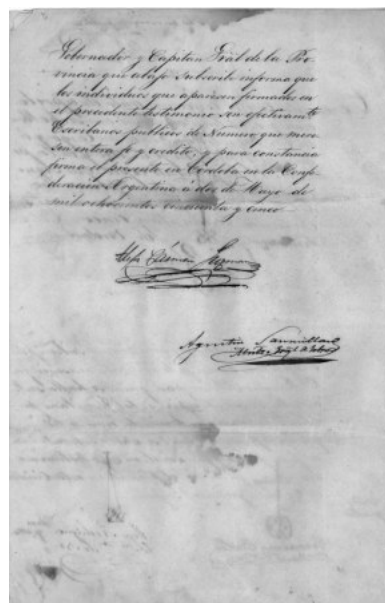 Gobernador y Capitan Gral de la Pro-
vincia que abajo subscribe informa que
los individuos que aparecen firmados en
el precedente testimonio son efectivamte
Escribanos publicos de Numero que mere
sen entera fe y credito; y para constancia
firma el presente en Cordoba en la Confe
deracion Argentina á dos de Mayo de
mil ochocientos cincuenta y cinco
Alejo Cármen Guzman
Agustin Sanmillan